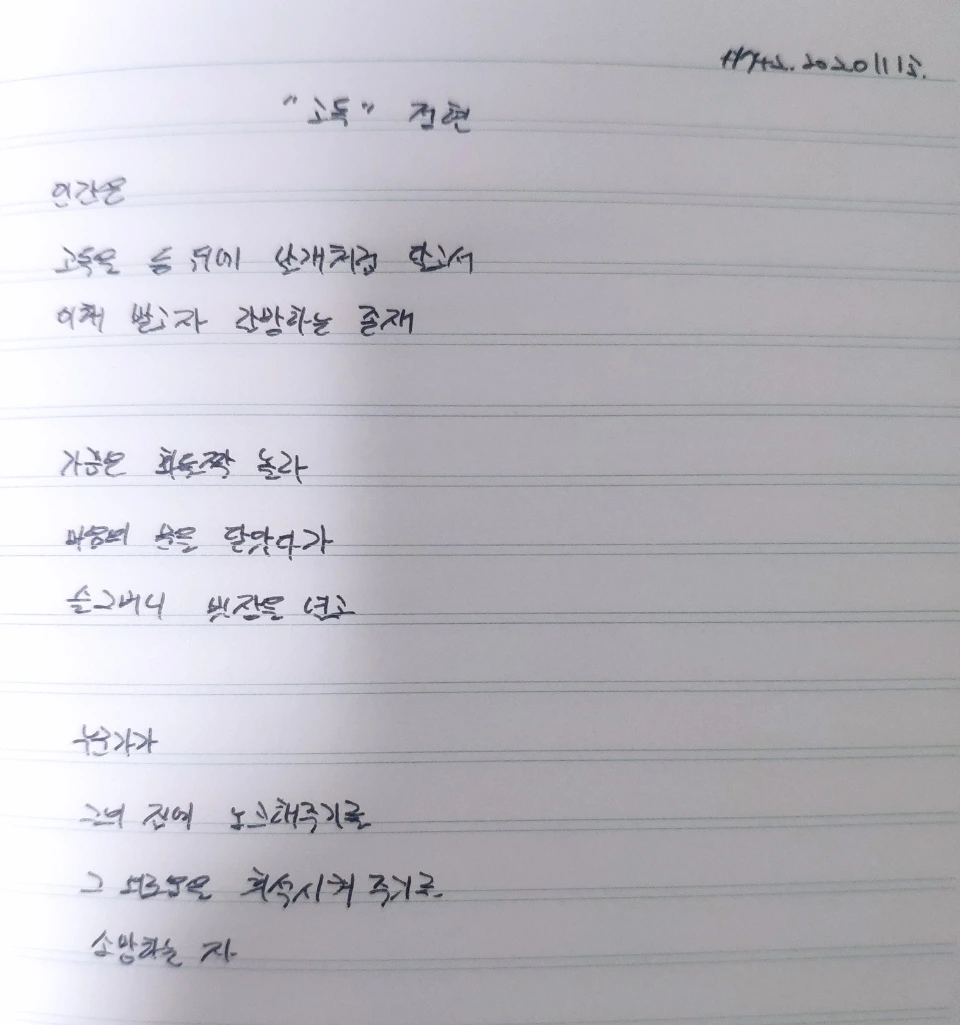 20201113.
"고독" 전현
인간은
고독을 등 뒤에 날개처럼 달고서
이해 받고자 갈망하는 존재
가끔은 화들짝 놀라
마음의 문을 닫았다가
슬그머니 빗장을 열고
누군가가
그녀 집에 노크해주기를
그 외로움을 희석시켜 주기를
소망하는 자